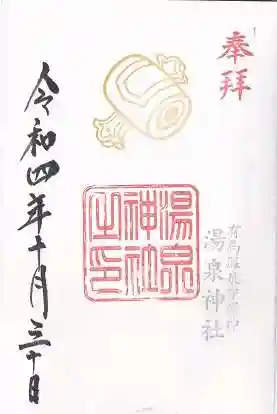 奉拝
湯泉神社
湯泉
神社
之印
令和四年十月三十日